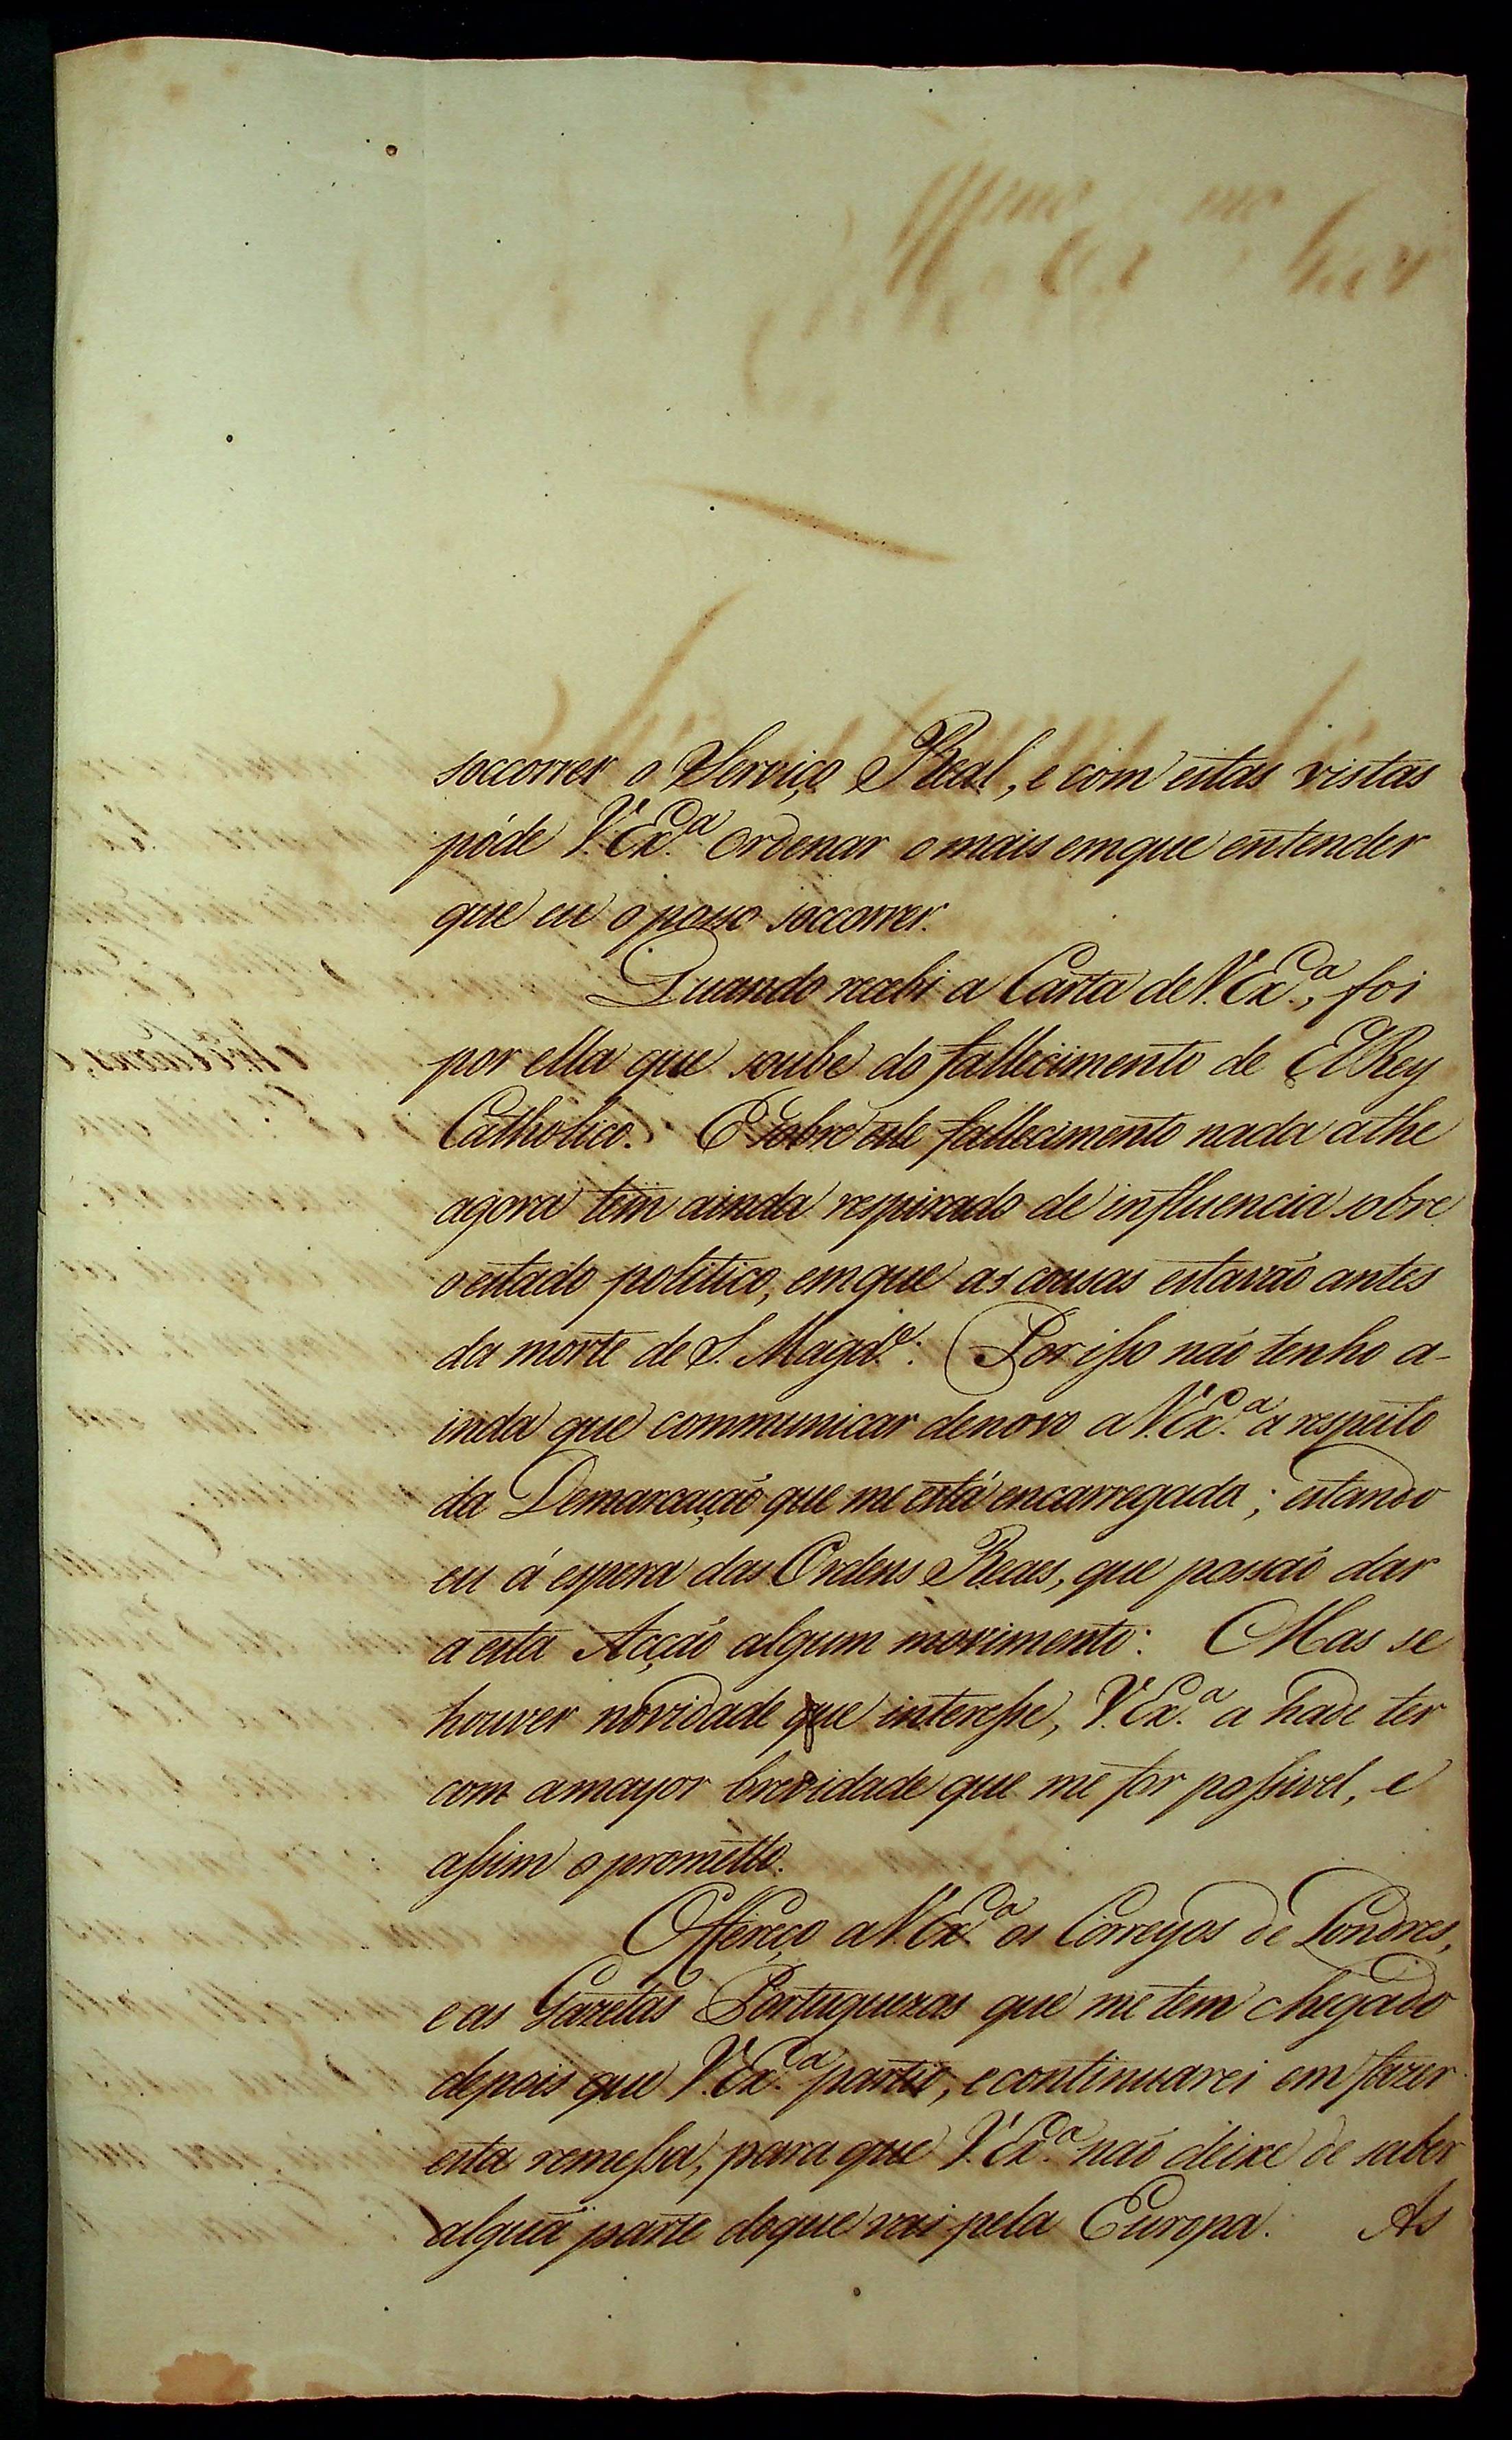 soccorrer o Serviço Real, e com estas vistas
póde V. Ex.ª ordenar o mais emque entender
que eu o posso soccorrer.
Quando recebi a Carta de V. Ex.ª, foi
por ella que soube do fallecimento de El Rey
Catholico. E sobre este fallecimento nada athe
agora tem ainda respirado de influencia sobre
o estado politico, emque as cousas estavaõ antes
da morte de S. Magd.ᵉ: Por isso naõ tenho a-
inda que communicar denovo a V. Ex.ª a respeito
da Demarcaçaõ que me está encarregada; estando
eu á espera das Ordens Reaes, que possaõ dar
a esta Acçaõ algum movimento: Mas se
houver novidade que interesse, V. Ex.ª a hade ter
com amayor brevidade que me for possivel, e
assim o prometto.
Offereço a V. Ex.ª os Correyos de Londres,
e as Gazetas Portuguezas que me tem chegado
depois que V. Ex.ª partio, e continuarei em fazer
esta remessa, para que V. Ex.ª naõ deixe de saber
alguã parte doque vai pela Europa. As